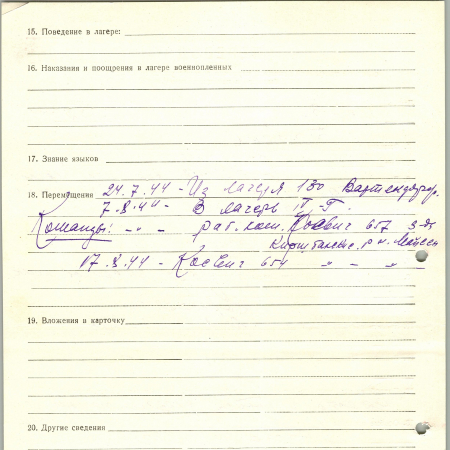 15. Поведение в лагере:
16. Наказания и поощрения в лагере военнопленных
17. Знание языков
18. Перемещение 24.7.44 - Из лагеря 180
7.8.44 - В лагерь IV-Г.
Команды: -"- раб. ком. Косвиг 657
17.8.44 - Косвиг 654 " - " - " -
19. Вложения в карточку
20. Другие сведения